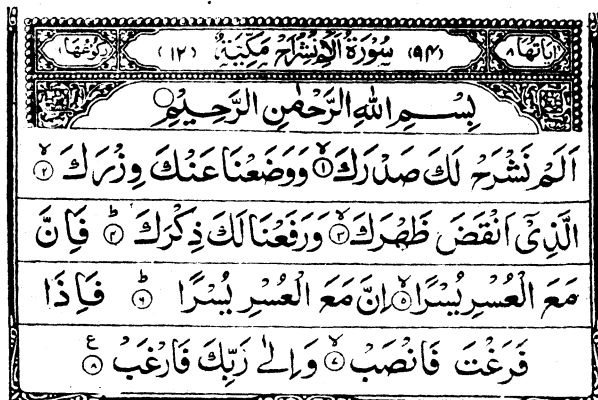 اٰیَاتُهَا ٨ (٩٤) سُوْرَةُ الْاِنْشِرَاحِ مَكِّيَّةٌ (١٢) رُكُوْعُهَا ١
بِسْمِ اللهِ الرَّحْمٰنِ الرَّحِيْمِ
اَلَمْ نَشْرَحْ لَكَ صَدْرَكَ ۙ﴿١﴾ وَوَضَعْنَا عَنْكَ وِزْرَكَ ۙ﴿٢﴾
الَّذِیْۤ اَنْقَضَ ظَهْرَكَ ۙ﴿٣﴾ وَرَفَعْنَا لَكَ ذِكْرَكَ ؕ﴿٤﴾ فَاِنَّ
مَعَ الْعُسْرِ يُسْرًا ۙ﴿٥﴾ اِنَّ مَعَ الْعُسْرِ يُسْرًا ؕ﴿٦﴾ فَاِذَا
فَرَغْتَ فَانْصَبْ ۙ﴿٧﴾ وَاِلٰى رَبِّكَ فَارْغَبْ ﴿٨﴾ ع